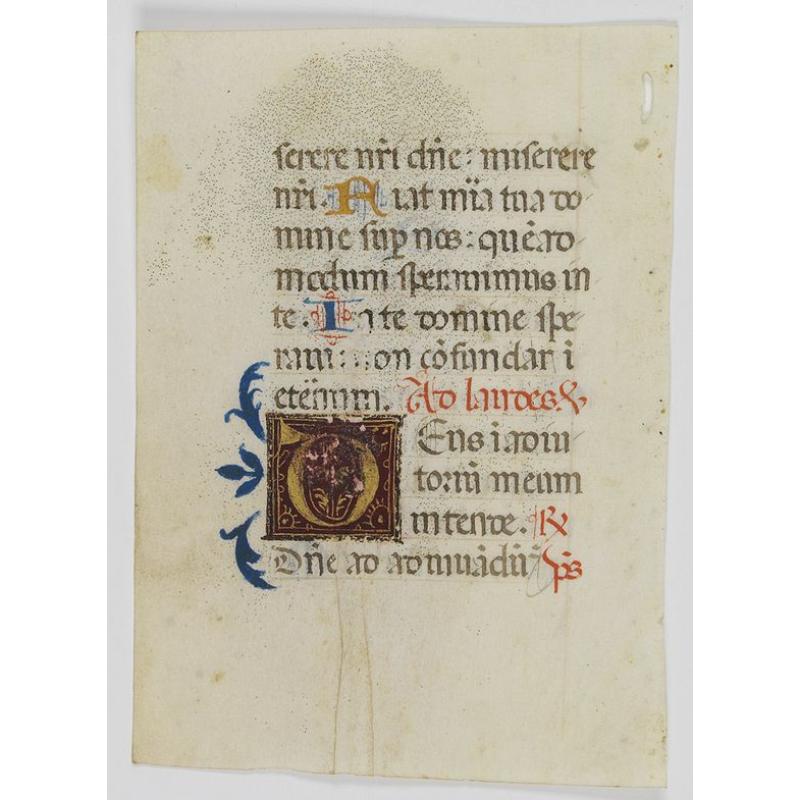 serere nr̃i dñe: miserere
nr̃i. Fiat mĩa tua do
mine sup̱ nos: quẽad
modum sperauimus in
te. In te domine spe
raui: non cõfundar ĩ
eternum. Ad laudes &
Deus ĩ adiu
toriũ meum
intende. ℟
Dñe ad adiuuãdũ p̃s